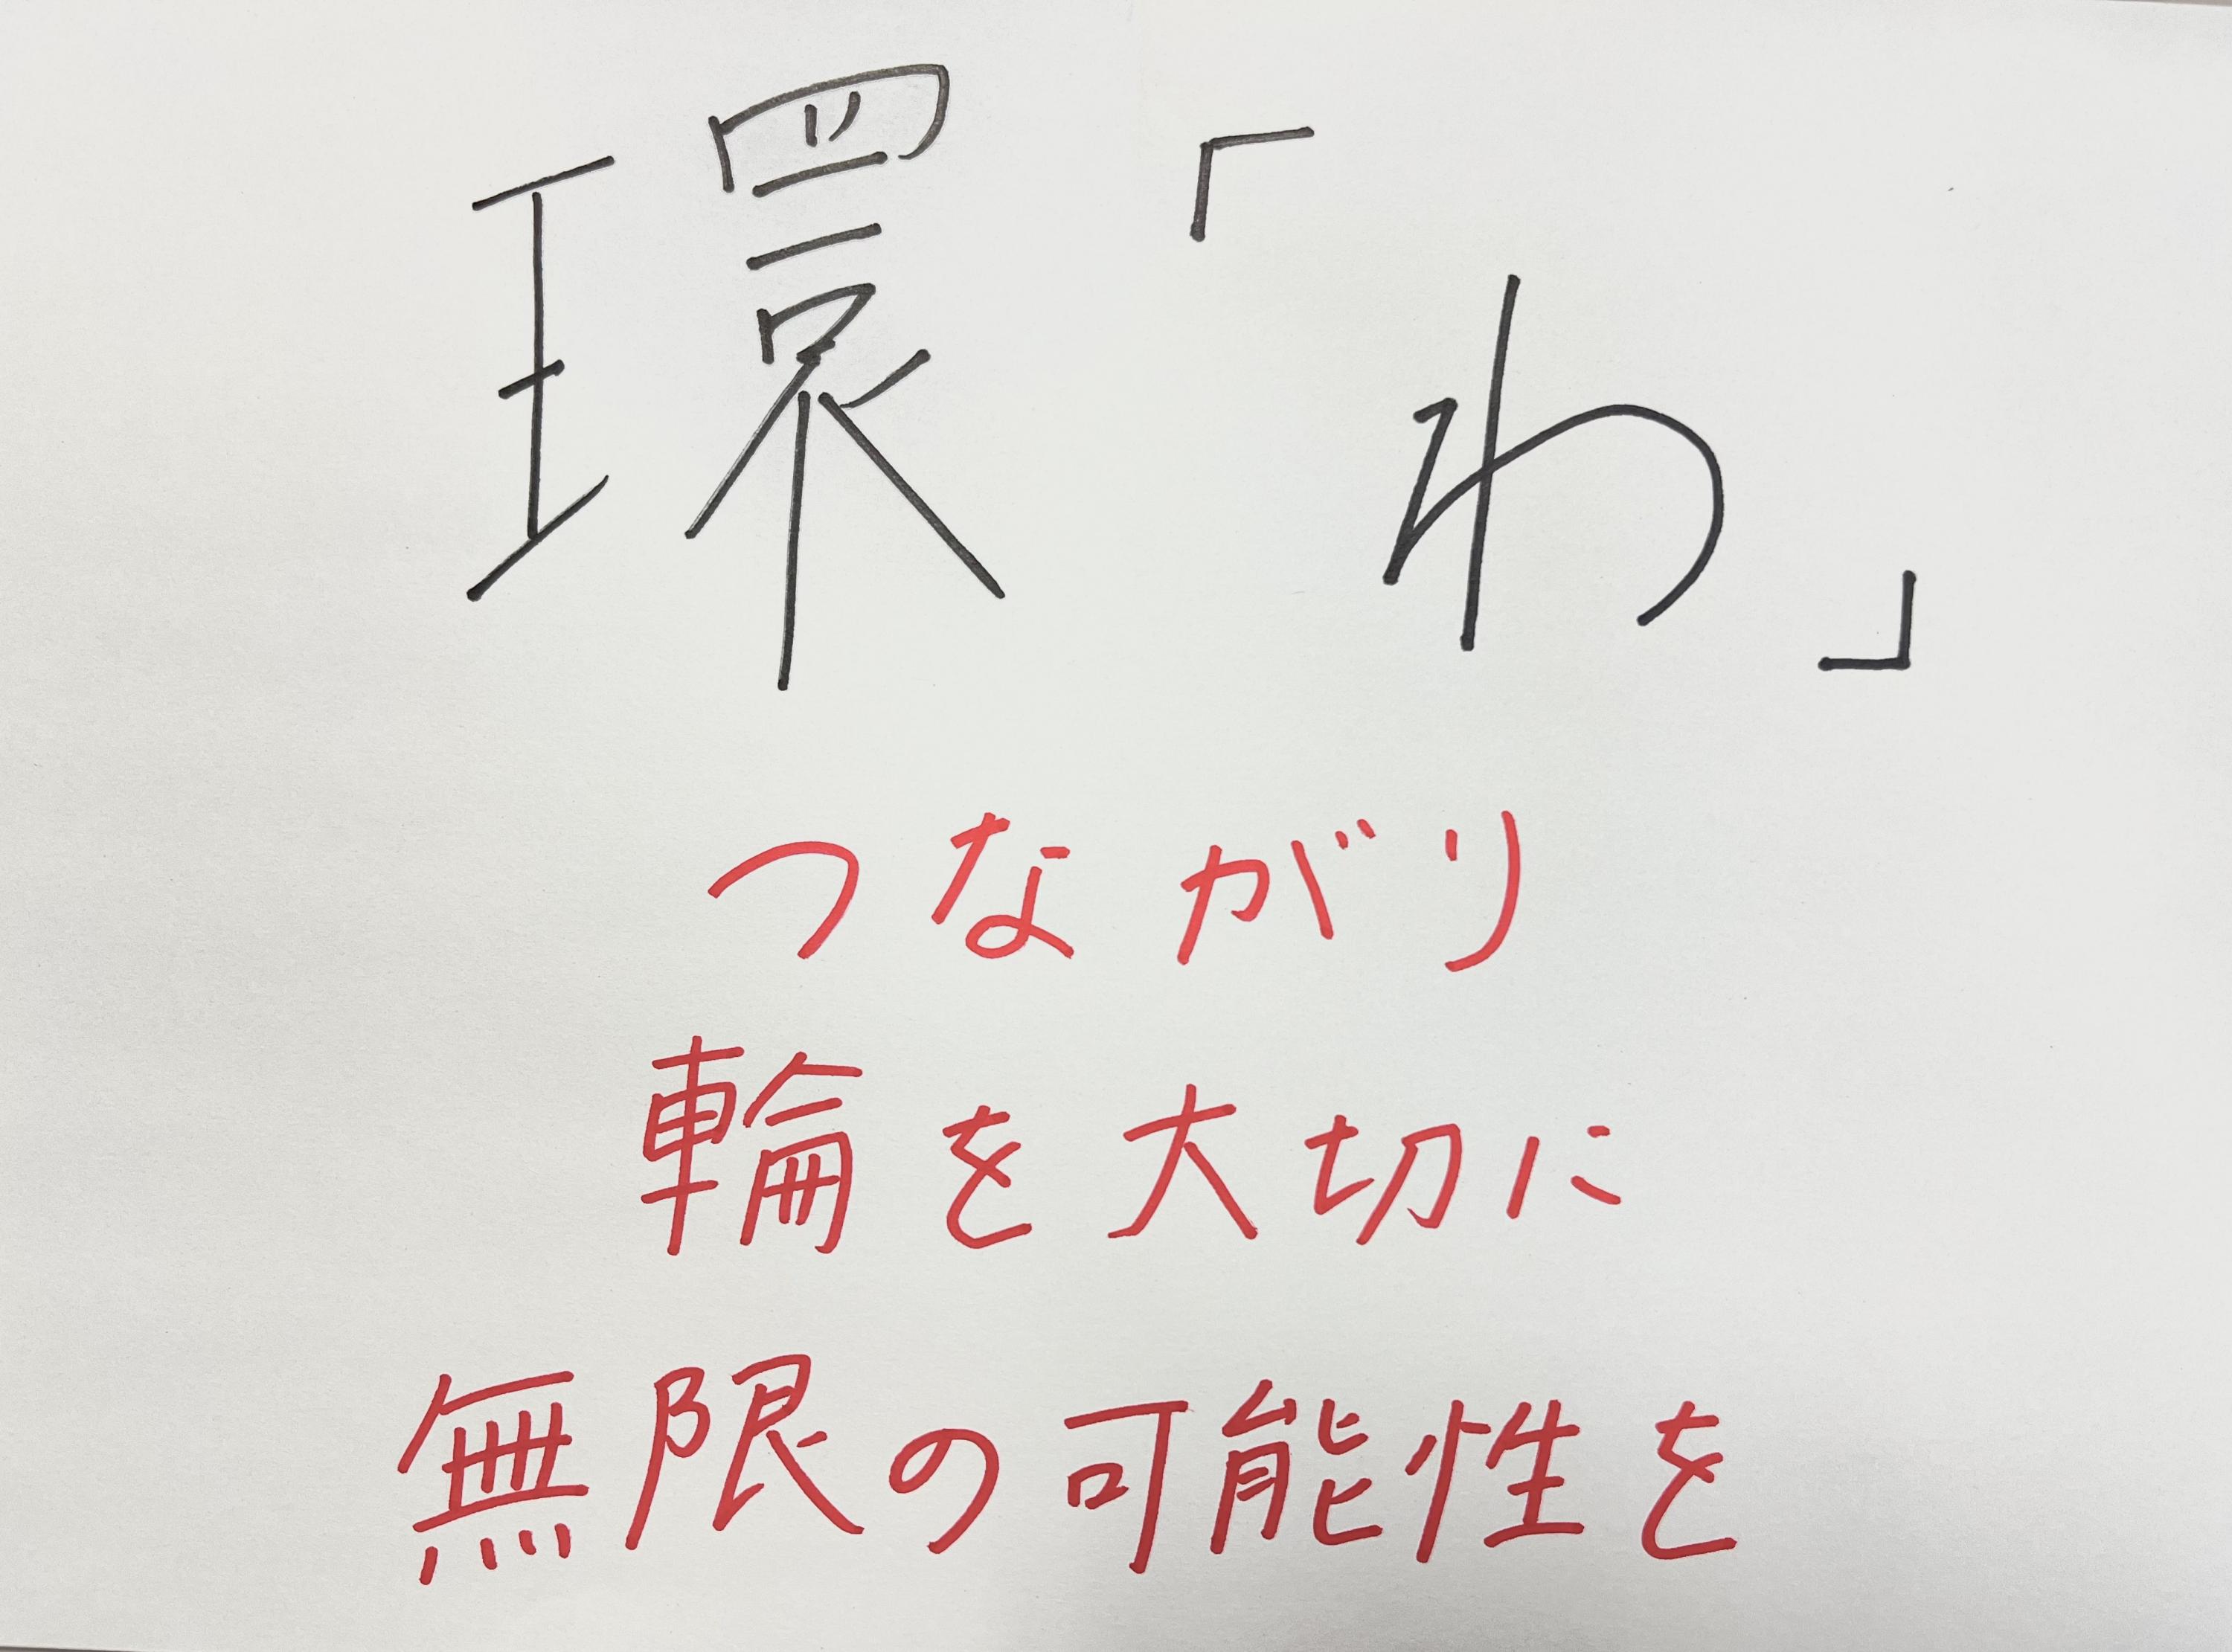 環「わ」
つながり
輪を大切に
無限の可能性を